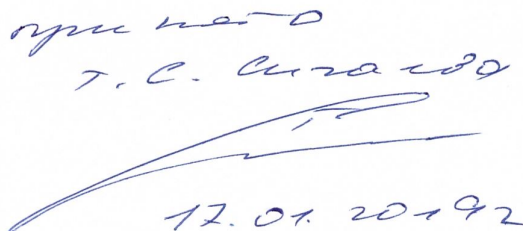 принято
Т. С. Сигалова
17.01.2019г